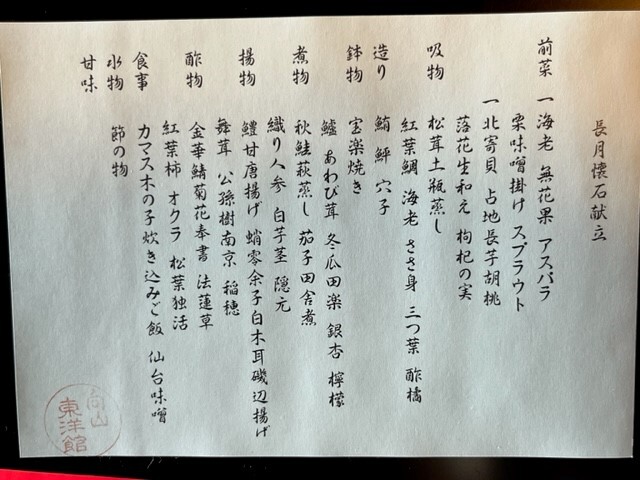 長月懐石献立
前菜 一 海老 無花果 アスパラ
栗味噌掛け スプラウト
一 北寄貝 占地長芋胡桃
落花生和え 枸杞の実
吸物 松茸土瓶蒸し
紅葉鯛 海老 ささ身 三つ葉 酢橘
造り 鮪 鮃 穴子
鉢物 宝楽焼き
鱸 あわび茸 冬瓜田楽 銀杏 檸檬
煮物 秋鮭萩蒸し 茄子田舎煮
織り人参 白芋茎 隠元
揚物 鱧甘唐揚げ 蛸零余子白木耳磯辺揚げ
舞茸 公孫樹南京 稲穂
酢物 金華鯖菊花奉書 法蓮草
紅葉柿 オクラ 松葉独活
食事 カマス木の子炊き込みご飯 仙台味噌
水物 節の物
甘味
向山
東洋館